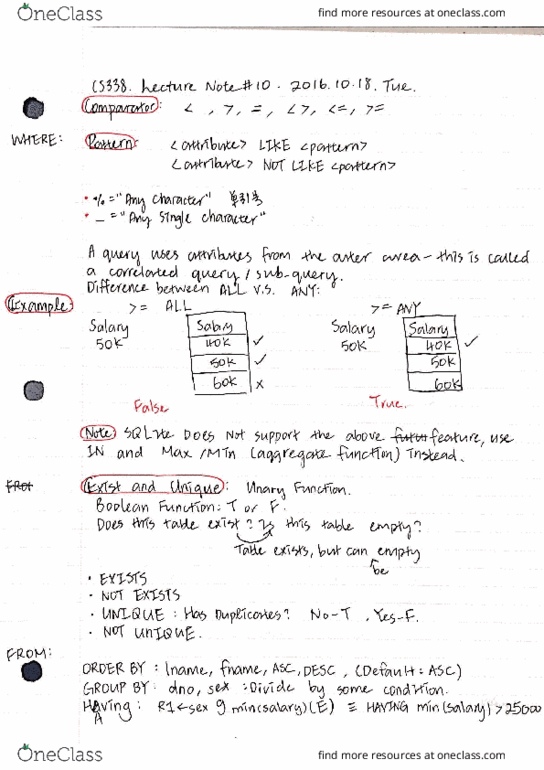 OneClass
find more resources at oneclass.com
CS338. Lecture Note#10 · 2016.10.18. Tue.
Comparator: < , >, =, <>, <=, >=
WHERE: Pattern: <attribute> LIKE <pattern>
<attribute> NOT LIKE <pattern>
• % = "Any character"
• _ = "Any single character"
A query uses attributes from the outer area - this is called
a correlated query / sub-query.
Difference between ALL V.S. ANY:
Example: >= ALL >= ANY
Salary Salary Salary Salary
50K 40K ✓ 50K 40K ✓
50K ✓ 50K
60K x 60K
False True.
Note SQLite Does Not support the above feature, use
IN and Max/Min (aggregate function) Instead.
Exist and Unique: Unary Function.
Boolean Function: T or F.
Does this table exist? Is this table empty?
Table exists, but can empty
be
• EXISTS
• NOT EXISTS
• UNIQUE : Has Duplicates? No-T , Yes-F.
• NOT UNIQUE.
FROM:
ORDER BY : lname, fname, ASC, DESC , (Default: ASC)
GROUP BY: dno, sex :Divide by some condition.
Having: R1←sex g min(salary)(E) ≡ HAVING min(salary) > 25000
A
OneClass
find more resources at oneclass.com